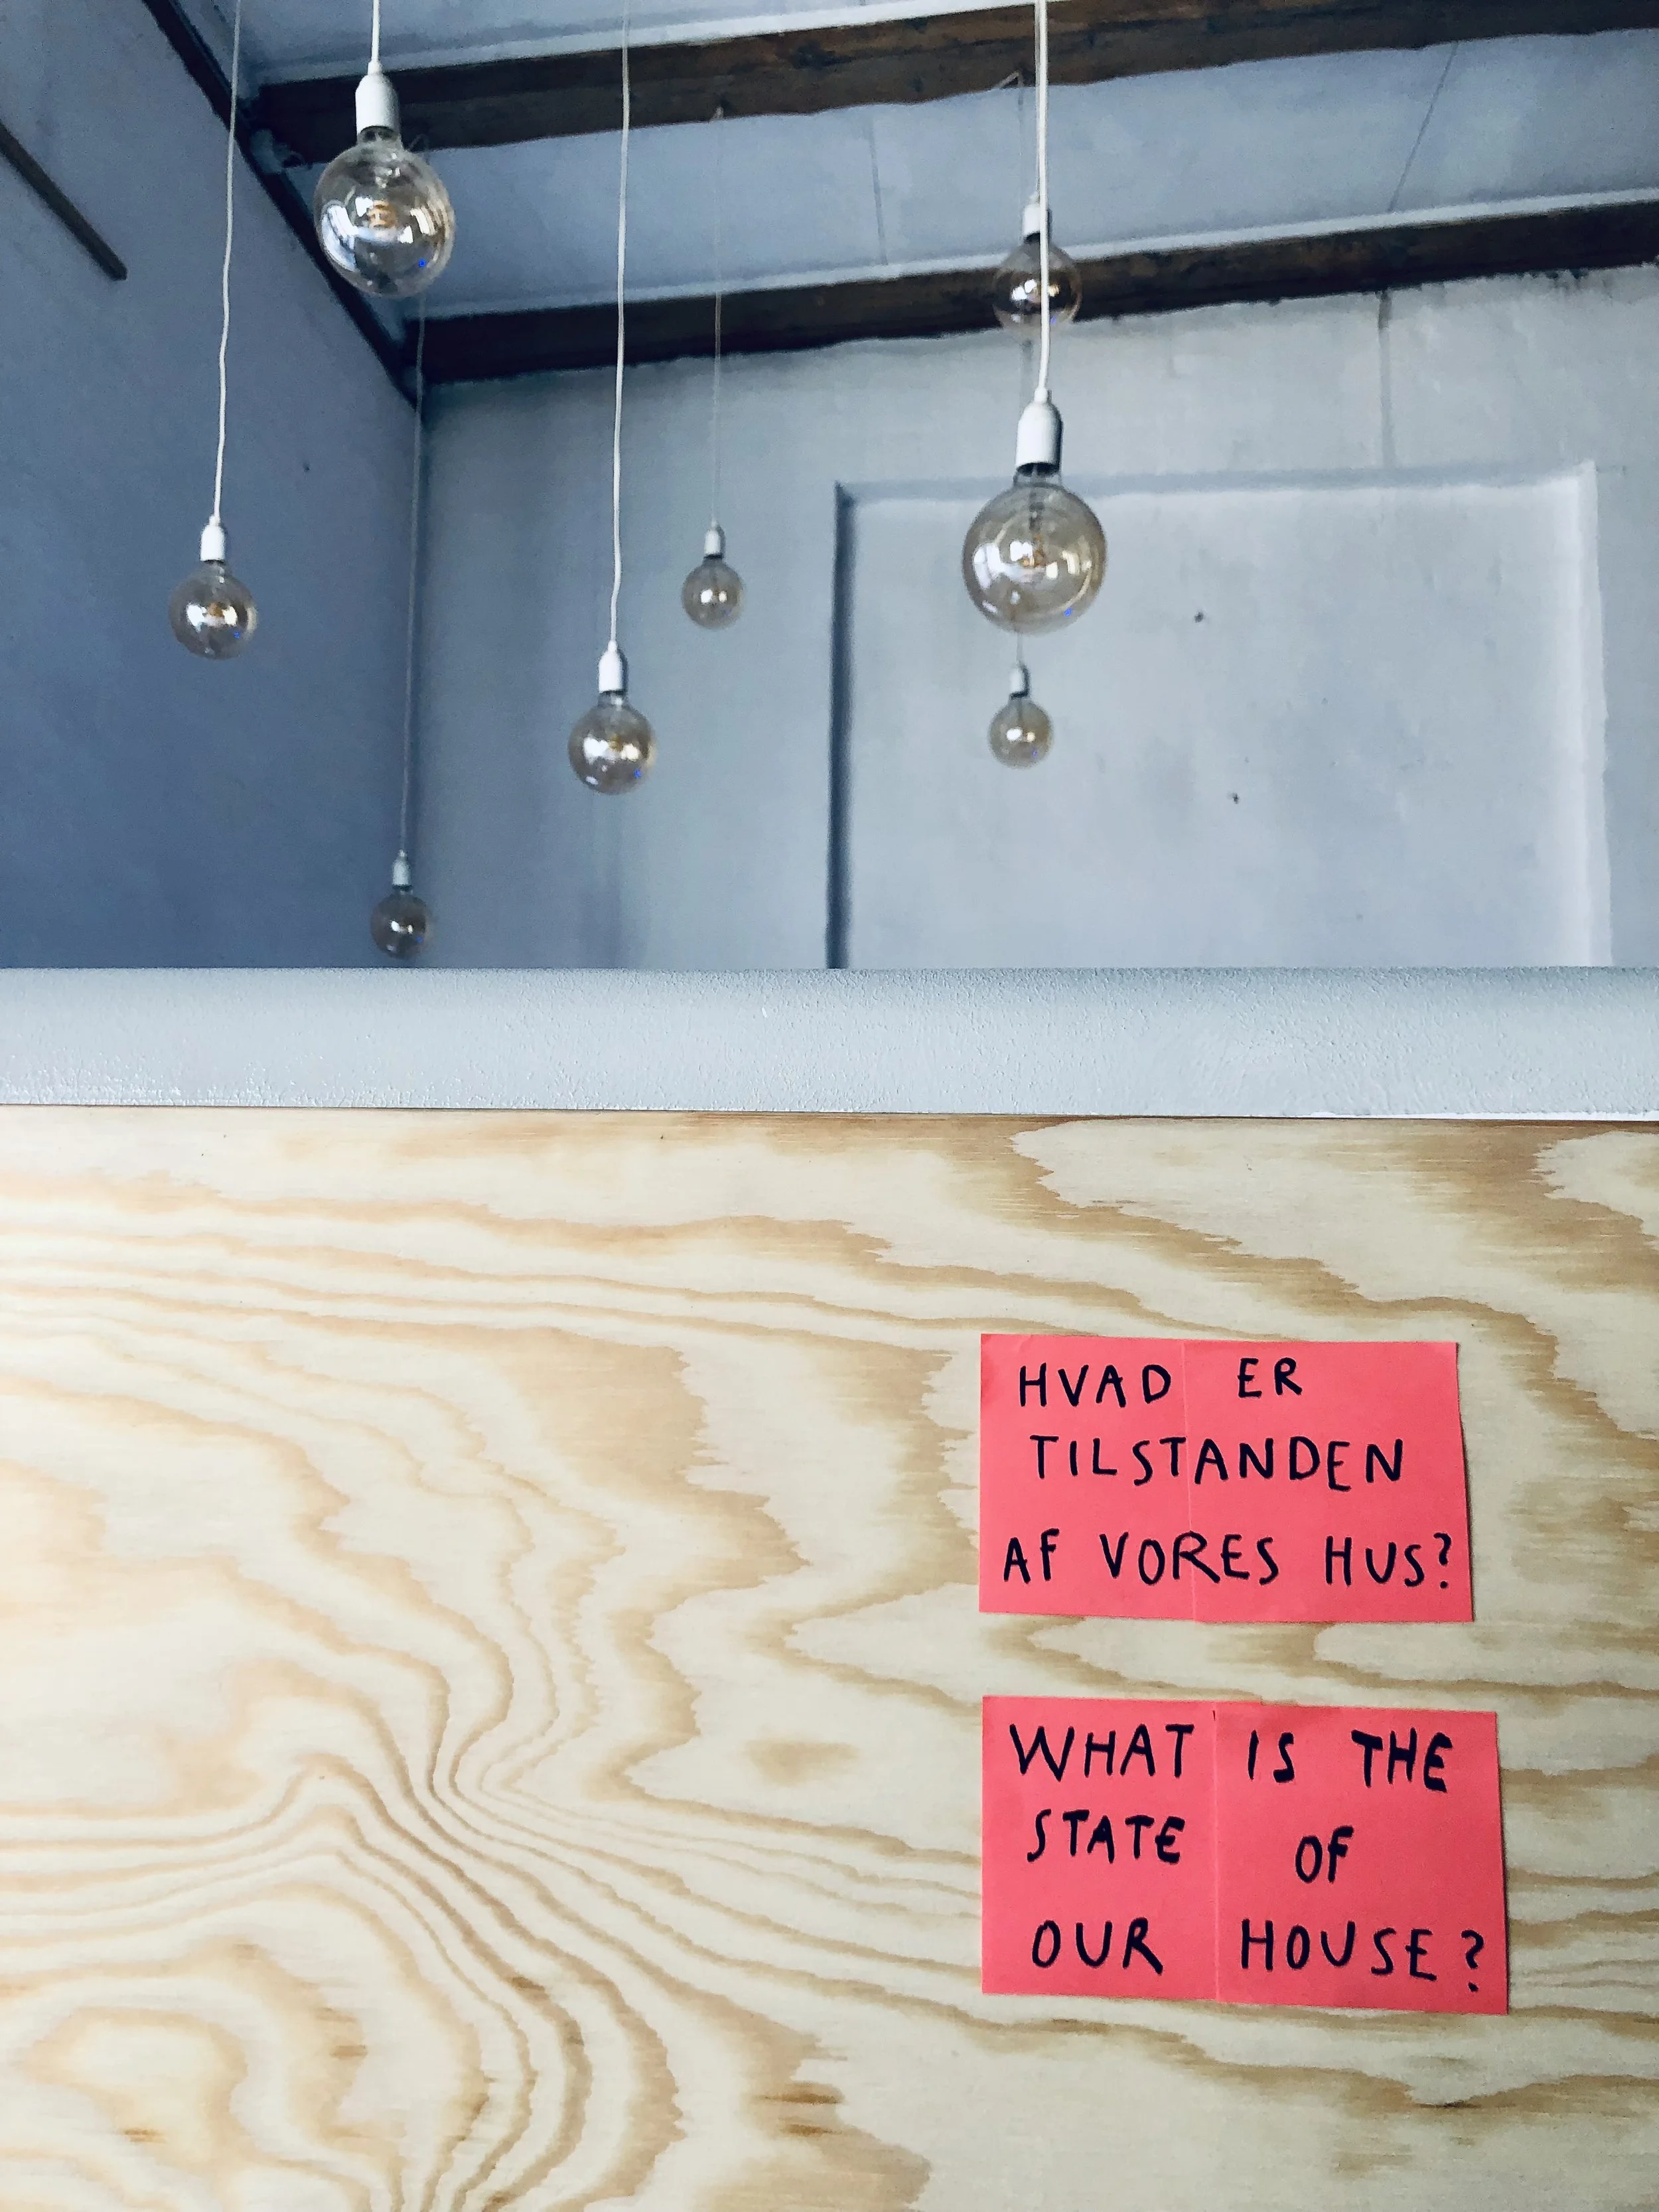 HVAD ER
TILSTANDEN
AF VORES HUS?
WHAT IS THE
STATE OF
OUR HOUSE?